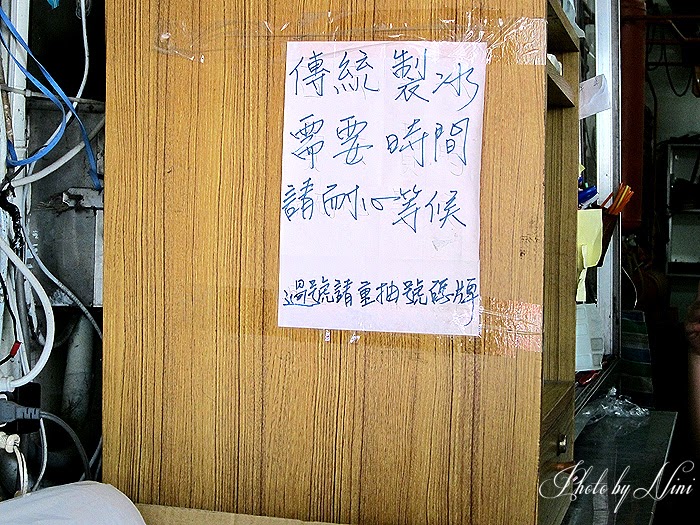 傳統製冰
需要時間
請耐心等候
過號請重抽號碼牌
Photo by Nini